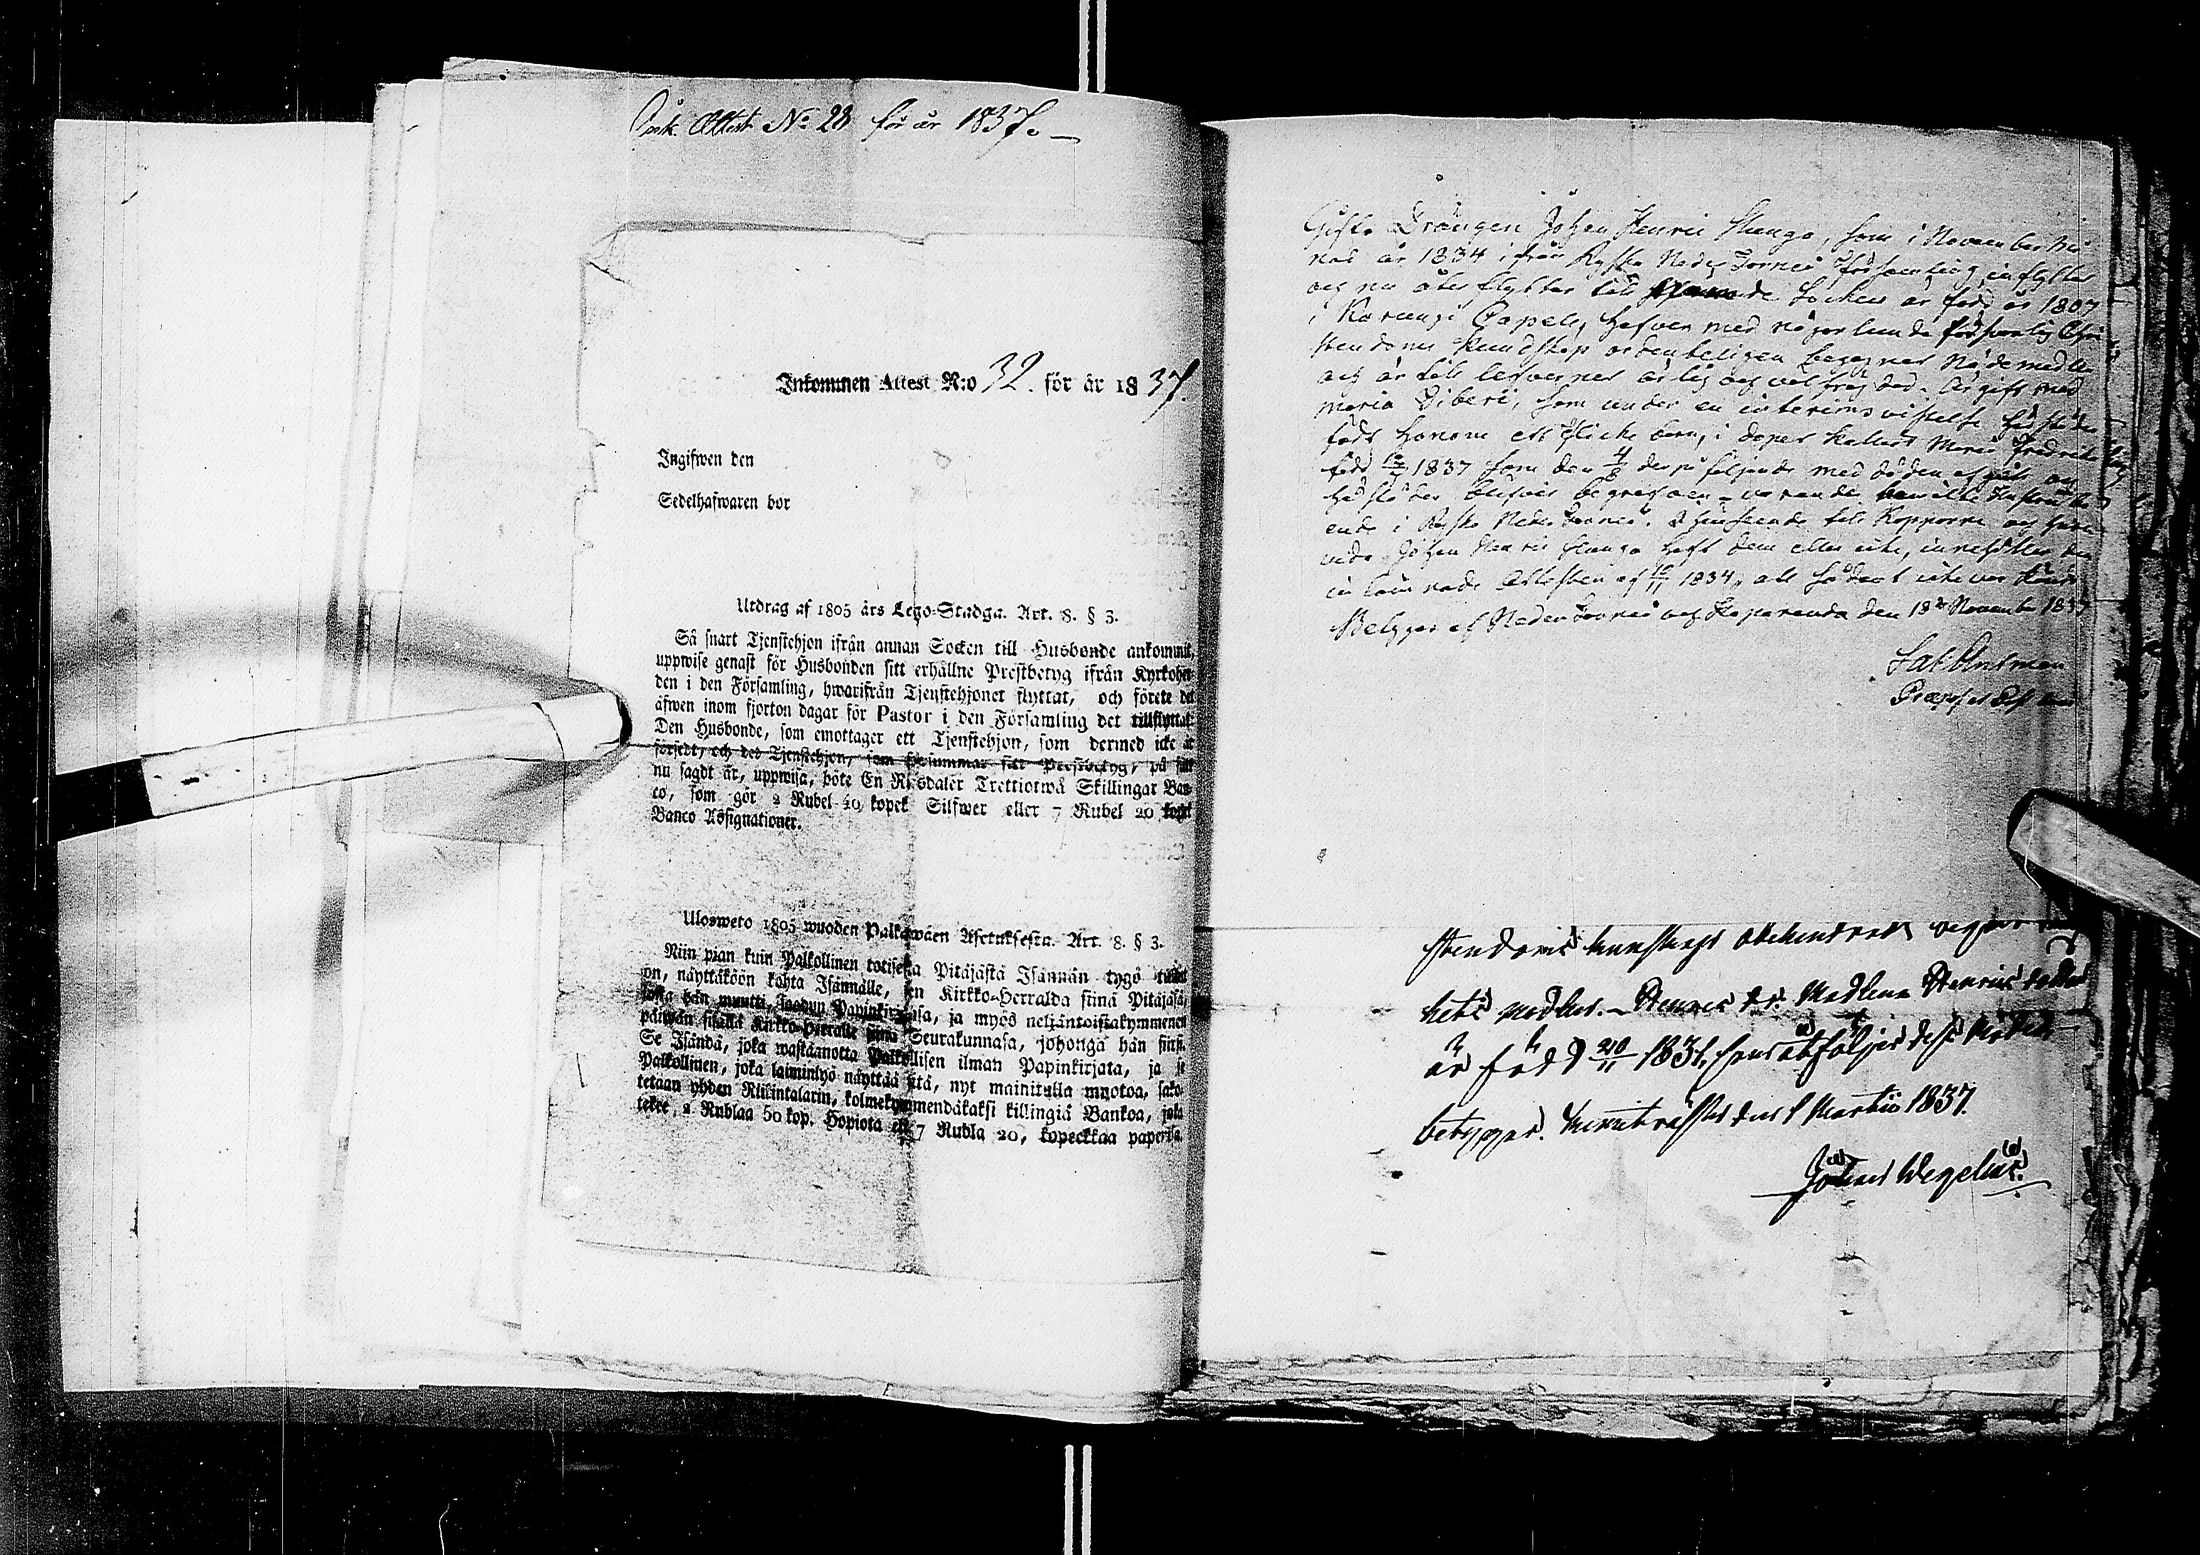 Ink. Attest No 28 för år 1837.
Inkommen Attest N:o 32. för år 1837.
Ingifwen den
Sedelhafwaren bor
Utdrag af 1805 års Lego-Stadga. Art. 8. § 3.
Så snart Tjenstehjon ifrån annan Socken till Husbonde ankommit,
uppwise genast för Husbonden sitt erhållne Prestbetyg ifrån Kyrkoher-
den i den Församling, hwarifrån Tjenstehjonet flyttat, och förete det
äfwen inom fjorton dagar för Pastor i den Församling det tillflyttat.
Den Husbonde, som emottager ett Tjenstehjon, som dermed icke är
försedt, och det Tjenstehjon, som försummar sitt Prestbetyg, på sätt
nu sagdt är, uppwisa, böte En Riksdaler Trettiotwå Skillingar Ban-
co, som gör 2 Rubel 40 kopek Silfwer eller 7 Rubel 20 kopek
Banco Assignationer.
Ulosweto 1805 wuoden Palkawäen Asetuksesta. Art. 8. § 3.
Niin pian kuin Palkollinen toisesta Pitäjästä Isännän tygö tullut
on, näyttäköön kohta Isännälle, sen Kirkko-Herralda siinä Pitäjäsä,
josta hän muutti, saadun Papinkirjansa, ja myös neljäntoistakymmenen
päiwän sisällä Kirkko-Herralle siinä Seurakunnasa, johonga hän siirsi.
Se Isändä, joka wastaanotta Palkollisen ilman Papinkirjata, ja se
Palkollinen, joka laiminlyö näyttää sitä, nyt mainitulla muotoa, sako-
tetaan yhden Riiksintalarin, kolmekymmendäkaksi killingiä Bankoa, joka
tekee, 2 Rublaa 50 kop. Hopiota eli 7 Rubla 20, kopeckkaa paperisa.
Gifte Drängen Johan Henric Stenga, som i November må
nad år 1834 ifrån Ryska Neder Torneå församling inflyttat
och nu åter flyttar till Socken är född år 1807
i Karungi Capell, hafver med någorlunda försvarlig Chri
stendoms Kundskap ordenteligen begagnat Nådemedlen
och är till lefvernet ärlig och väl frejdad. Är gift med
Maria Diberi, som under en interims vistelse härstädes
födt honom ett flicke barn, i dopet kallad Maria Fredrica
född 1837 som den 4/8 derpå följande med döden afgått och
härstädes blifvit begrafven
ende i Ryska Neder Torneå. I hänseende till Kopporne och huru
vida Johan Henric Stenga haft dem eller icke, innehåller den
inlämnade Attesten af 10/11 1834, att sådant icke var kändt
Betygar af Neder Torneå och Haparanda den 18de November 1837
stendoms kunskap
hets medlen. Henrics dr. Madlena Henricsdotter
är född 20/11 1831, som åtföljer dess Moder
betygar. den 1 Martii 1837.
Johan Wegelius.